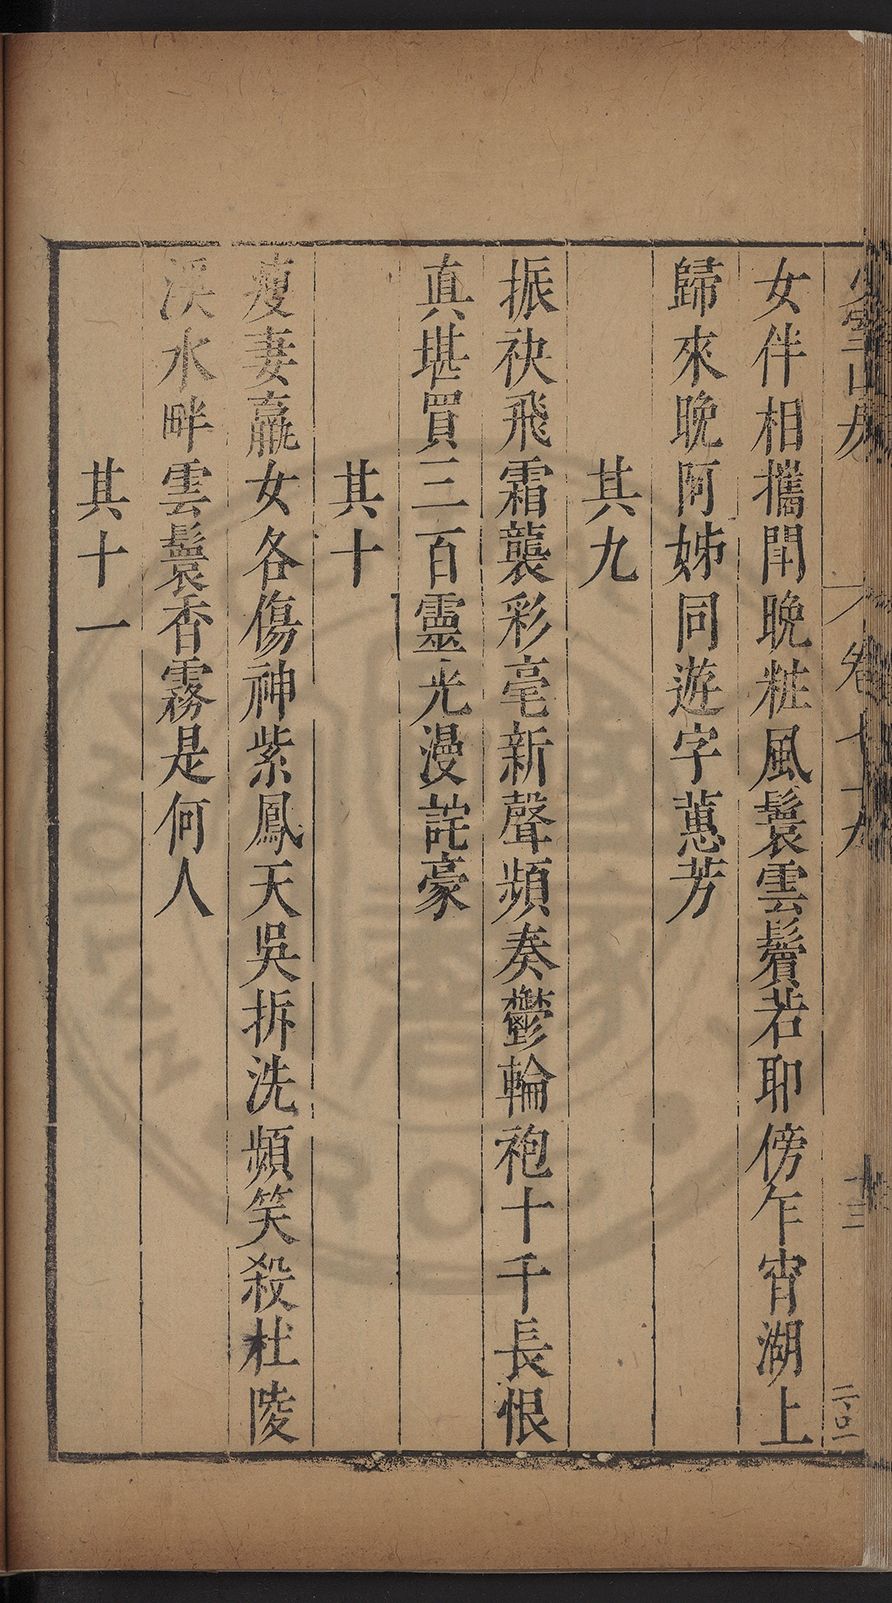 女伴相攜鬥晚粧風鬟雲鬢若耶傍乍宵湖上
歸來晚阿姊同遊字蕙芳
其九
振袂飛霜襲彩毫新聲頻奏鬱輪袍十千長恨
真堪買三百靈光漫詫豪
其十
瘦妻羸女各傷神紫鳳天吳拆洗頻笑殺杜陵
溪水畔雲鬟香霧是何人
其十一